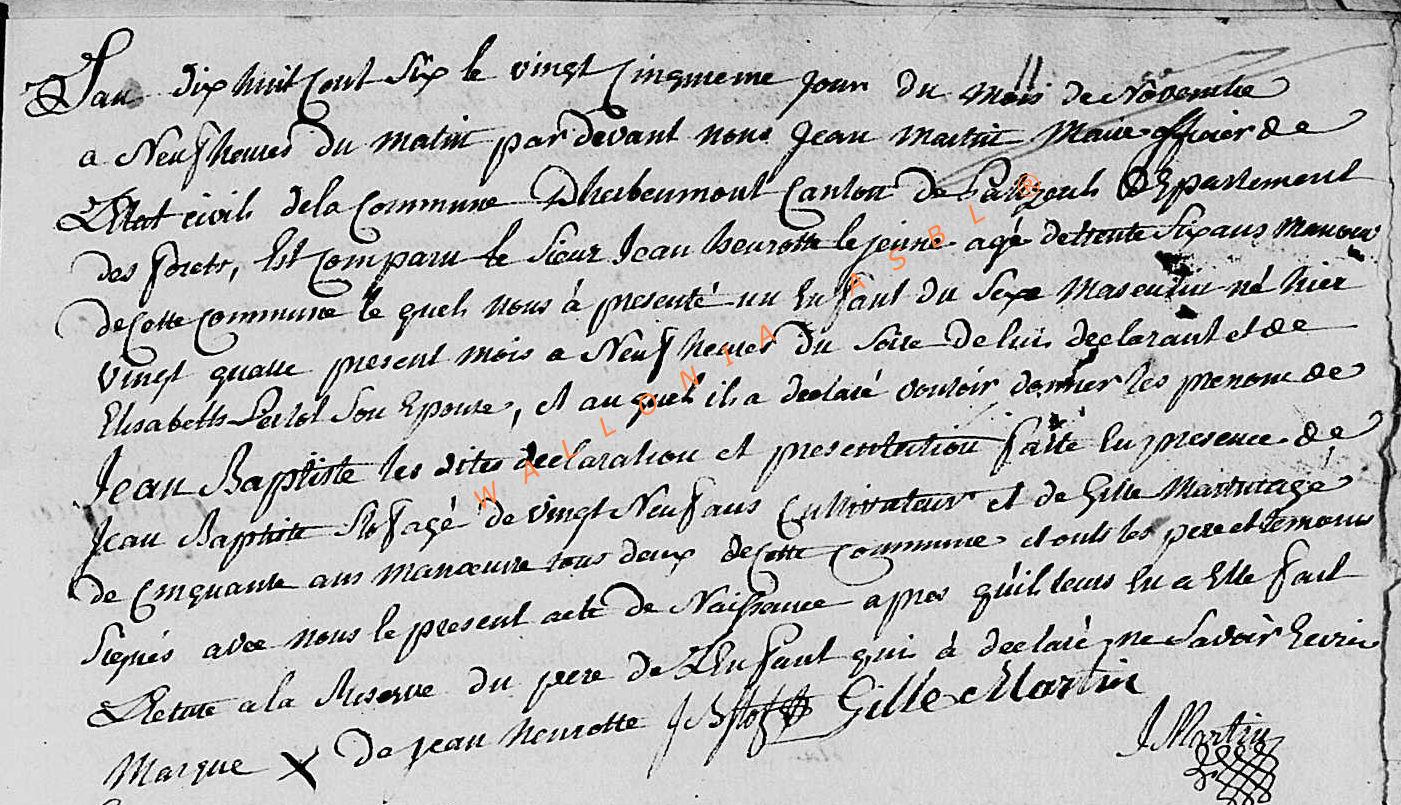 L'an dix huit Cent Six le vingt Cinqmeme jour du mois de Novembre
a Neuf heures du matin par devant nous Jean Martin Maire officier de
L'Etat civils dela Commune Dherbeumont Canton de Département
des forets, Est Comparu le Sieur Jean henrotte le jeune agé detrente Six ans Manœuv
decette Commune le quels nous à presenté un Enfant du Sexe Masculin né hier
vingt quatre present mois a Neuf heures du Soire de lui declarant et de
Elisabeth Son Epouse, et au quel il a declaré vouloir donner les prenom de
Jean Baptiste les dites declaration et presentation faite En presence de
Jean Baptiste Stof agé de vingt Neuf ans Cultivateur et de Gille Martin agé
de Cinquante ans manœuvre tous deux decette Commune et onts les pere et temoins
Signés avec nous le present acte de Naissance apres quil leurs En a Ette fait
Lecture a la Reserve du pere de L'Enfant qui à declaré ne Savoir Ecrire
Marque X de jean henrotte J B Stof Gille Martin
J Martin
WALLONIA ASBL ®